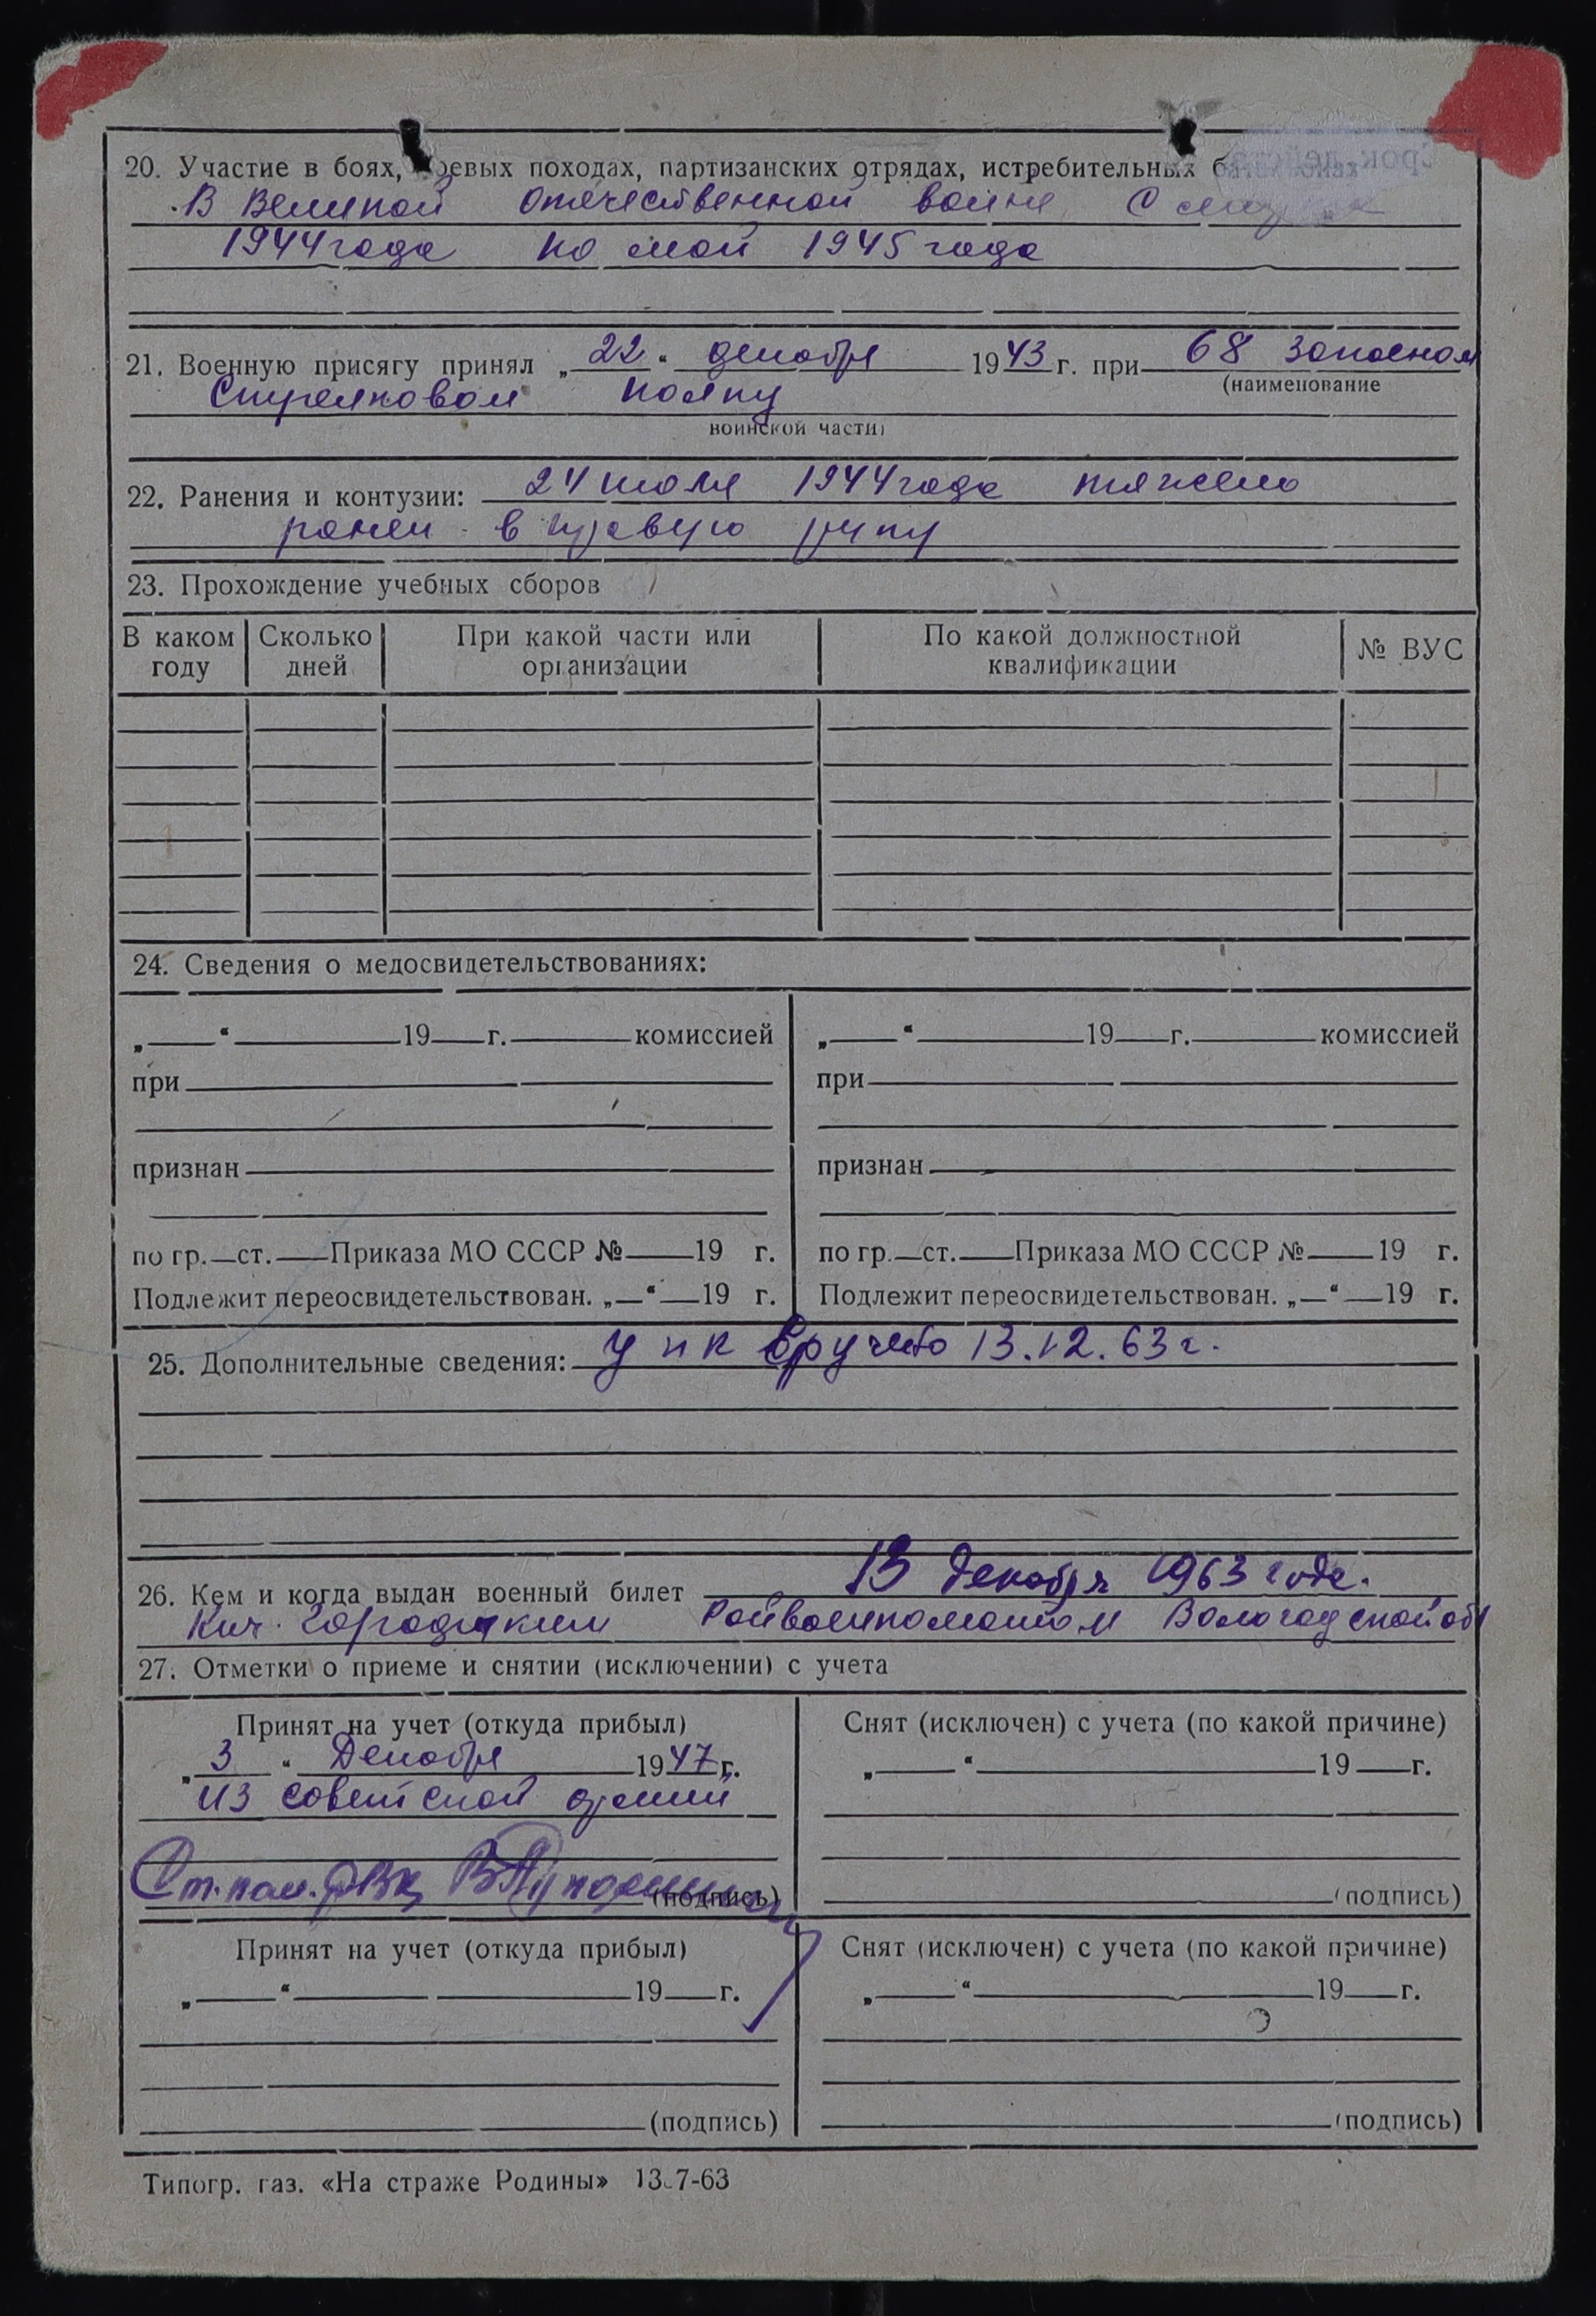 20. Участие в боях, боевых походах, партизанских отрядах, истребительных
В Великой Отечественной войне С
1944 года по май 1945 года
21. Военную присягу принял „22“ декабря 1943 г. при 68 запасном
(наименование
Стрелковом полку
воинской части)
22. Ранения и контузии: 24 июля 1944 года тяжело
ранен в правую руку
23. Прохождение учебных сборов
В каком году Сколько дней При какой части или организации По какой должностной квалификации № ВУС
24. Сведения о медосвидетельствованиях:
„ “ 19 г. комиссией
при
признан
по гр. ст. Приказа МО СССР № 19 г.
Подлежит переосвидетельствован. „ “ 19 г.
„ “ 19 г. комиссией
при
признан
по гр. ст. Приказа МО СССР № 19 г.
Подлежит переосвидетельствован. „ “ 19 г.
25. Дополнительные сведения: упк вручено 13.12.63 г.
26. Кем и когда выдан военный билет 13 декабря 1963 года.
Кич. Городецким Райвоенкоматом Вологодской обл
27. Отметки о приеме и снятии (исключении) с учета
Принят на учет (откуда прибыл)
„3“ Декабря 1947 г.
из советской армии
Ст. пом. РВК
(подпись)
Снят (исключен) с учета (по какой причине)
„ “ 19 г.
(подпись)
Принят на учет (откуда прибыл)
„ “ 19 г.
(подпись)
Снят (исключен) с учета (по какой причине)
„ “ 19 г.
(подпись)
Типогр. газ. «На страже Родины» 13.7-63